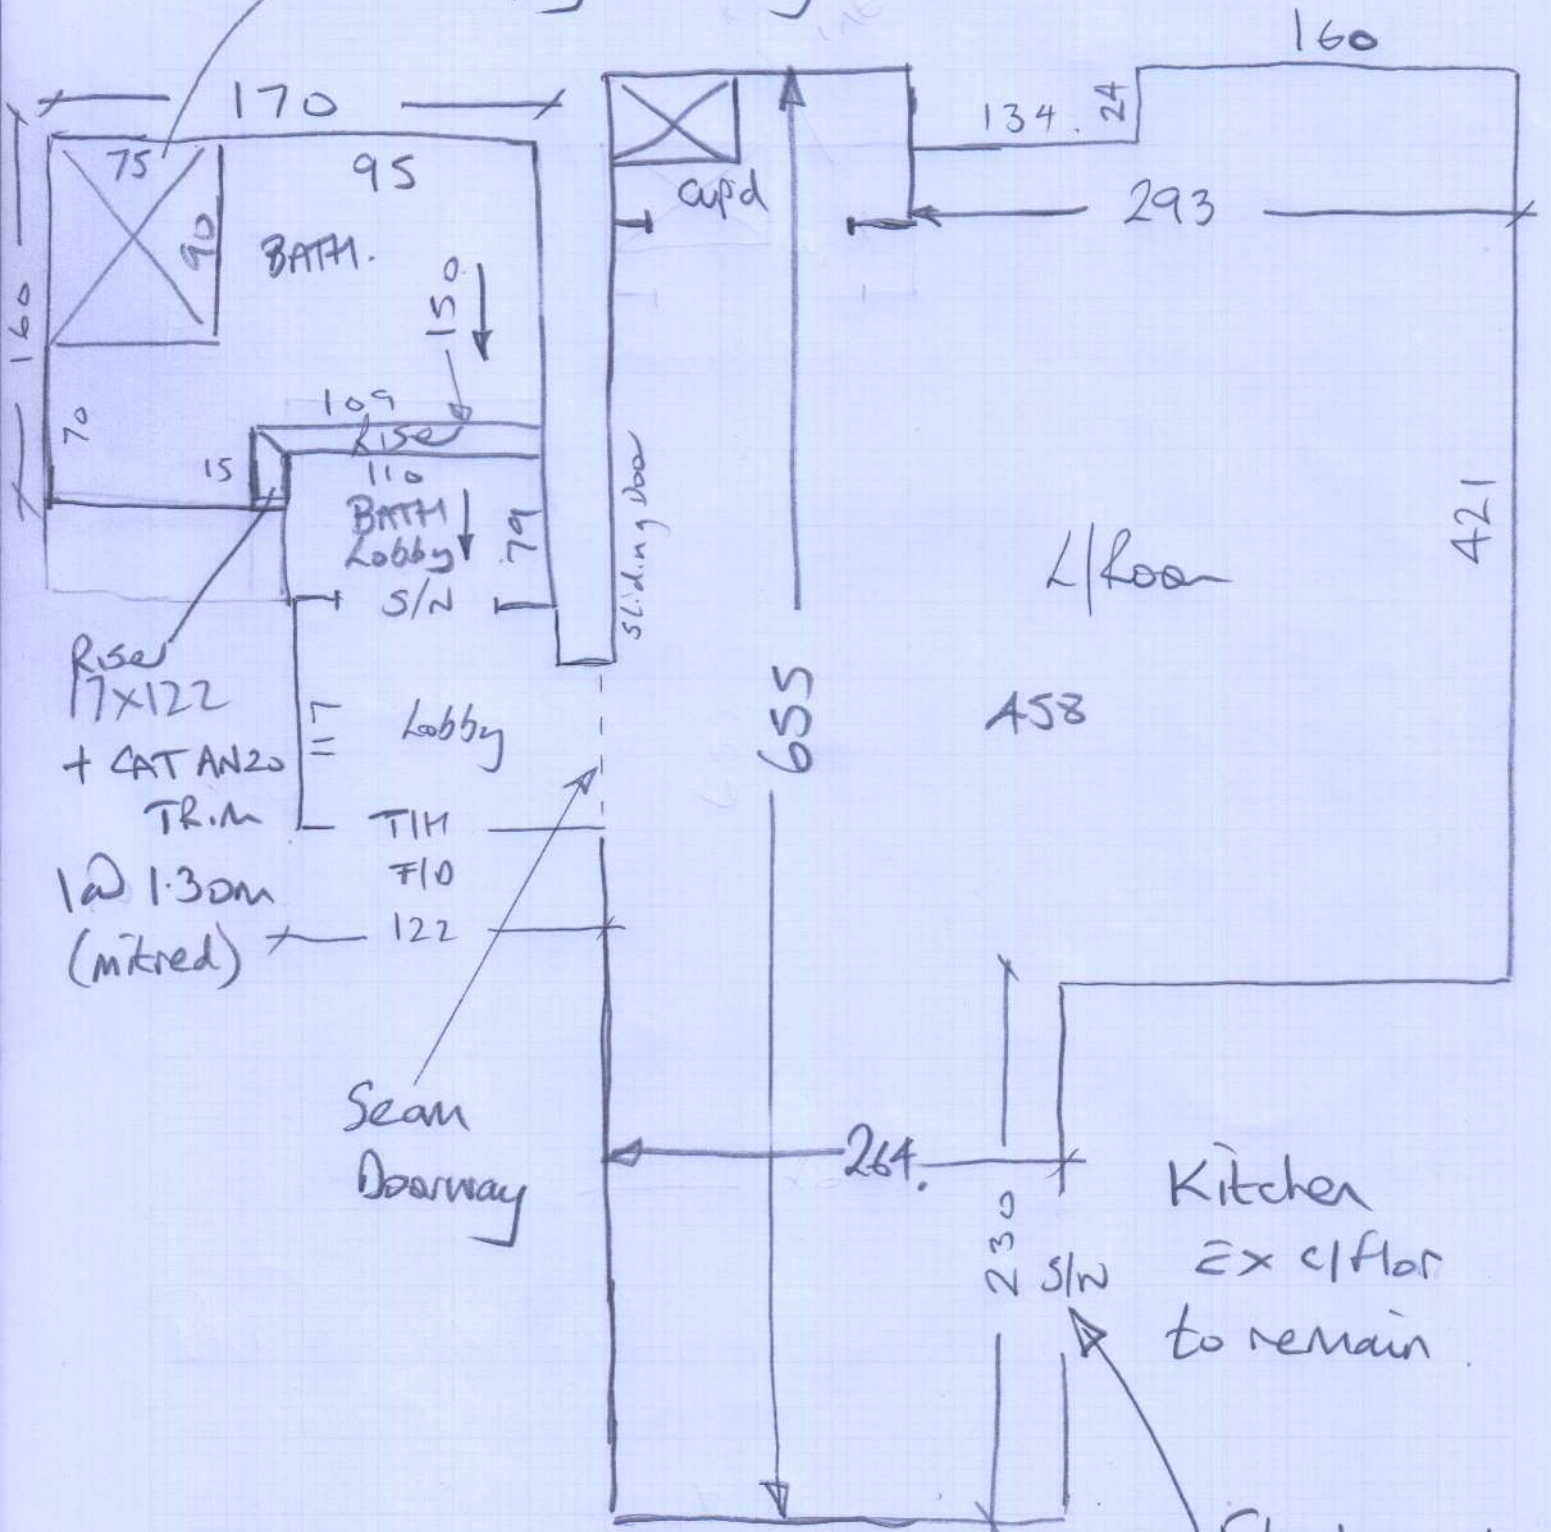 160
170
134.
24
75
95
cup'd
293
90
BATH.
150
160
109
Riser
70
15
110
BATH
Lobby
79
S/N
sliding Door
421
L/Room
Riser
17x122
+ CAT AN20
TRIM
1@ 1.30m
(mitred)
117
Lobby
655
458
T/H
F/D
122
Seam
Doorway
264.
230
S/N
Kitchen
Ex c/flor
to remain